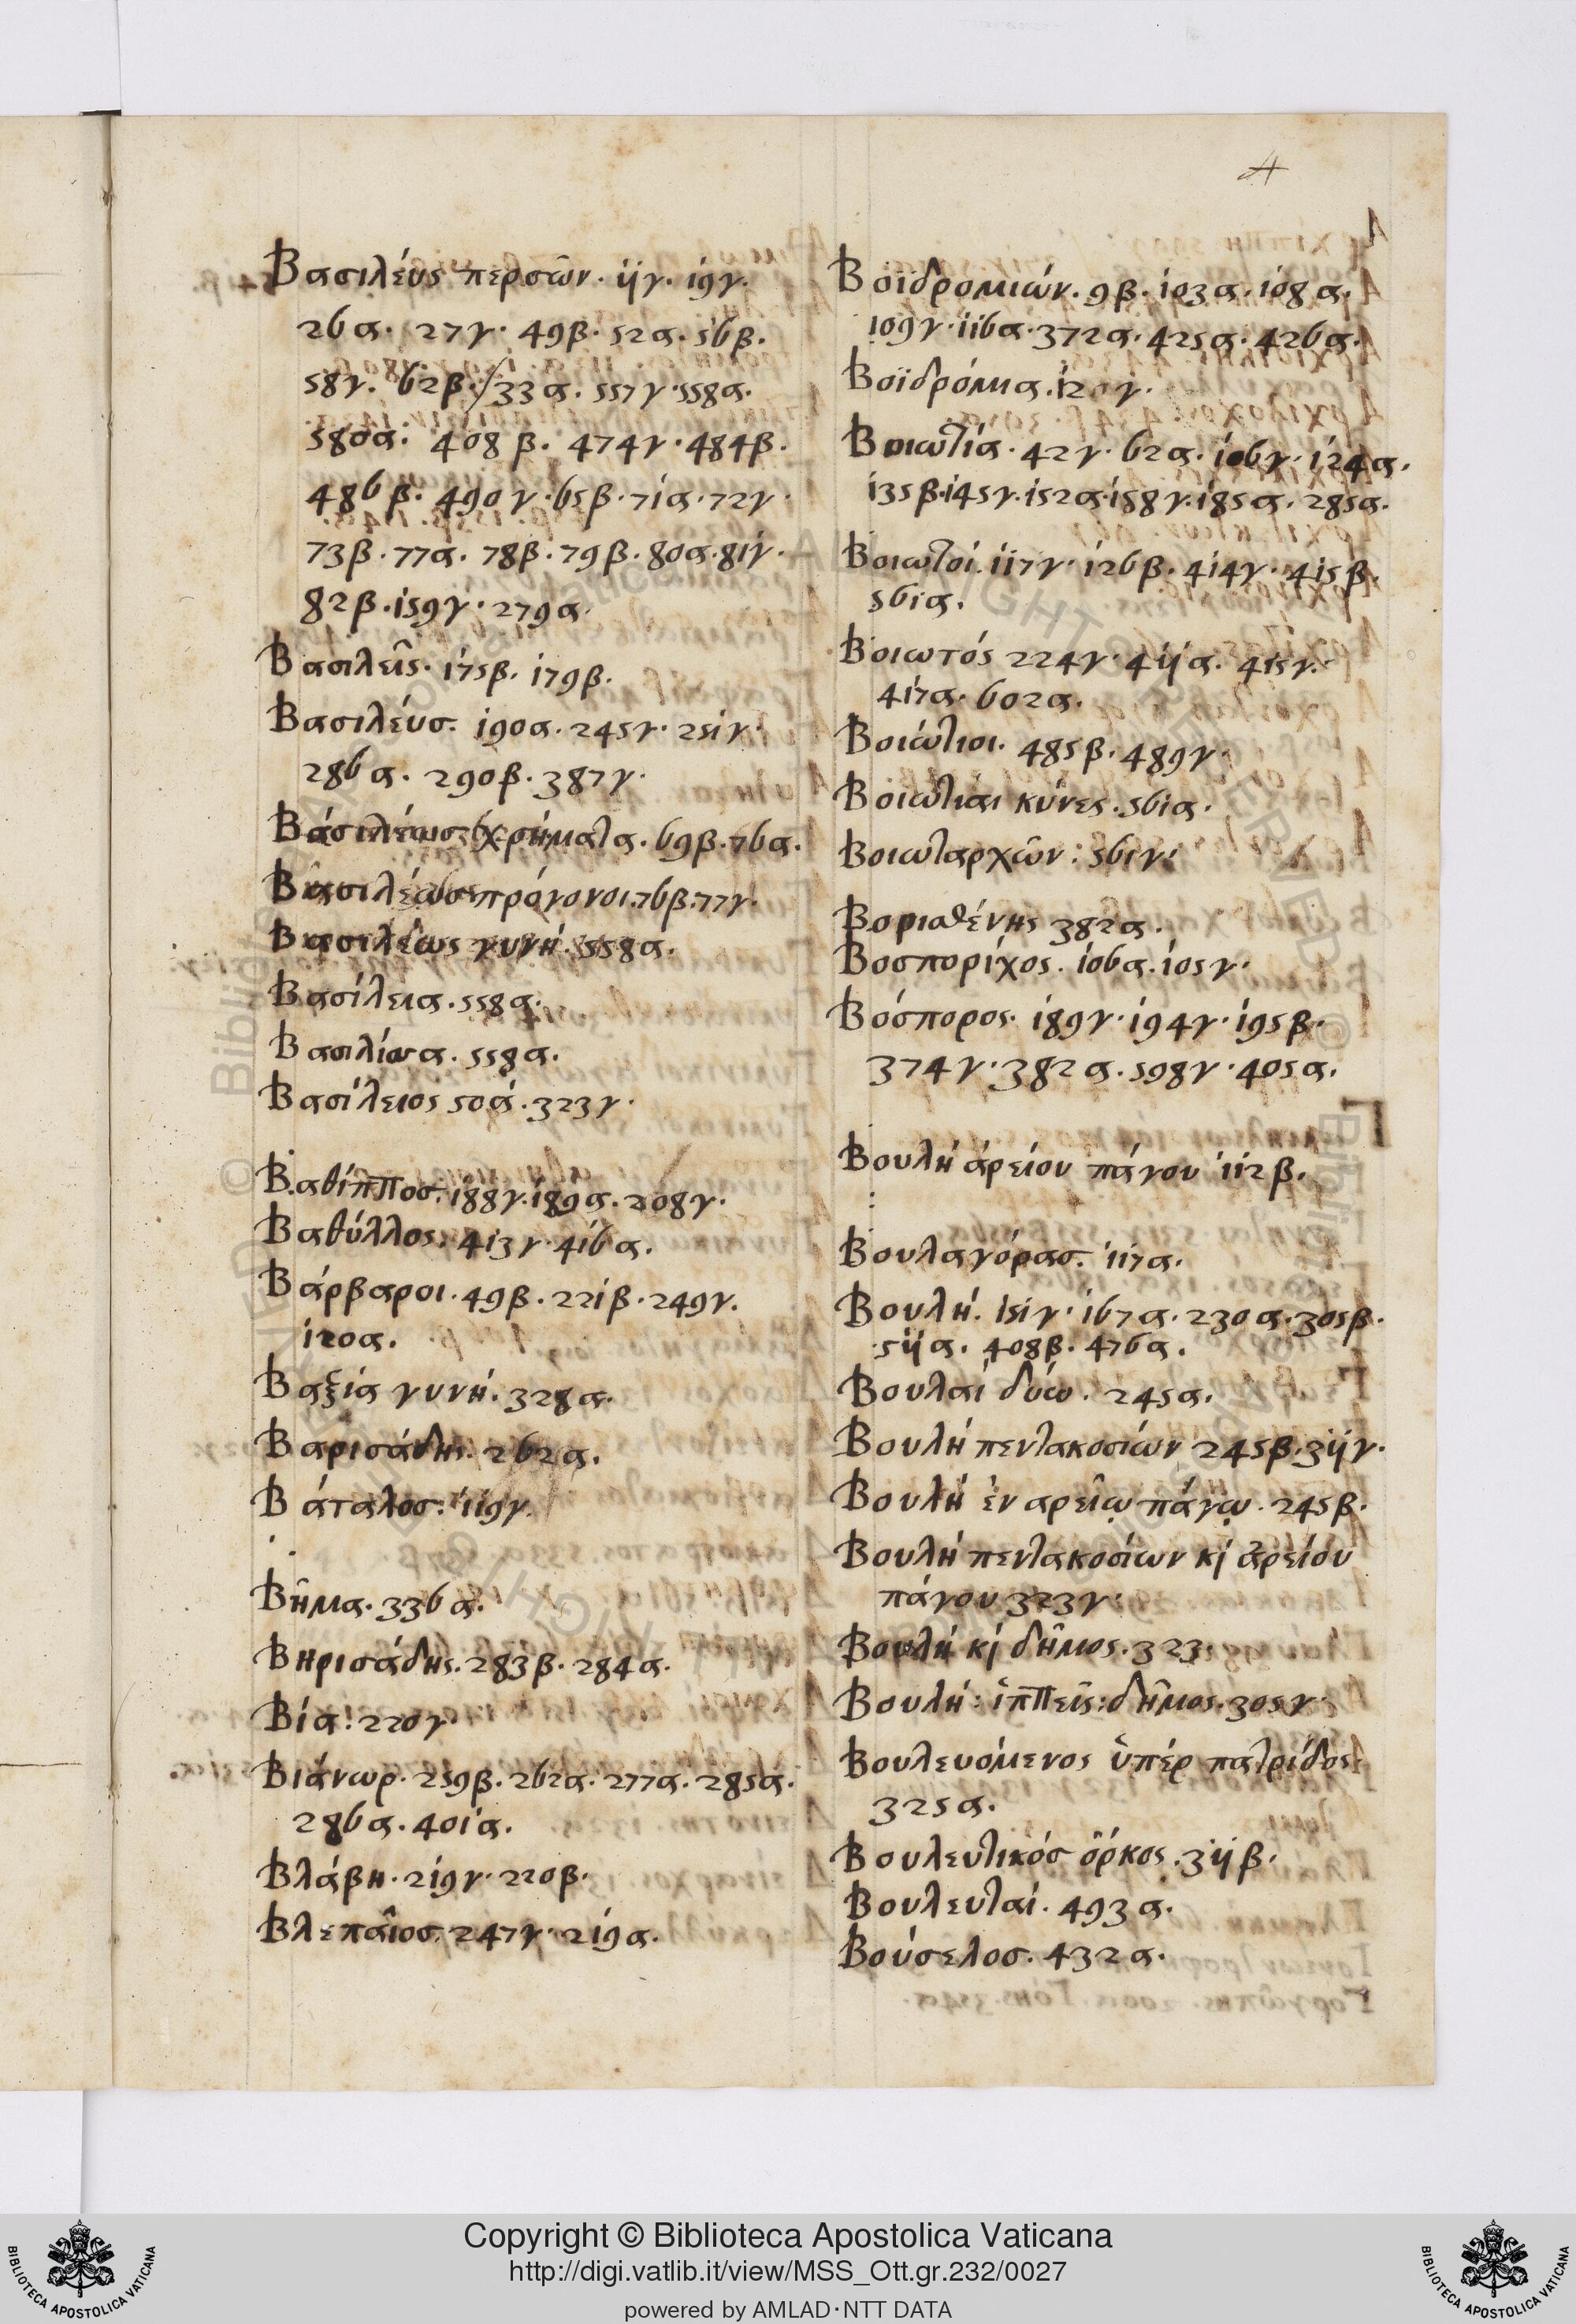 4
Βασιλέυς περσῶν. 11γ. 19γ.
26α. 27γ. 49β. 52α. 56β.
58γ. 62β./33α. 557γ. 558α.
580α. 408β. 474γ. 484β.
486β. 490γ. 65β. 71α. 72γ.
73β. 77α. 78β. 79β. 80α. 81γ.
82β. 159γ. 279α.
Βασιλεῖς. 175β. 179β.
Βασιλέυσ. 190α. 245γ. 251γ.
286α. 290β. 387γ.
Βασιλέωσ χρήματα. 69β. 76α.
Βασιλέωσ πρόγονοι. 76β. 77γ.
Βασιλέως γυνή. 558α.
Βασίλεια. 558α.
558α.
Βασίλειος 50α. 323γ.
Βαθίππος. 188γ. 189α. 208γ.
Βαθύλλος. 413γ. 416α.
Βάρβαροι. 49β. 221β. 249γ.
120α.
Βαξιά γυνή. 328α.
Βαρισάδης. 262α.
Βάταλοσ: 119γ.
Βῆμα. 336α.
Βηρισάδης. 283β. 284α.
Βία: 220γ.
Βιάνωρ. 259β. 262α. 277α. 285α.
286α. 401α.
Βλάβη. 219γ. 220β.
Βλεπαῖοσ. 247γ. 219α.
Βοϊδρομιών. 9β. 103α. 108α.
109γ. 116α. 372α. 425α. 426α.
Βοϊδρόμια. 120γ.
Βοιωτία. 42γ. 62α. 106γ. 124α.
135β. 145γ. 152α. 158γ. 185α. 285α.
Βοιωτοί. 117γ. 126β. 414γ. 415β.
561α.
Βοιωτός 224γ. 411α. 415γ.
417α. 602α.
Βοιώτιοι. 485β. 489γ.
Βοιώτιαι κύνες. 561α.
Βοιωταρχῶν: 561γ:
Βορισθένης 382α.
Βοσπορίχος. 106α. 105γ.
Βόσπορος. 189γ. 194γ. 195β.
374γ. 382α. 598γ. 405α.
Βουλή άρείου πάγου 112β.
Βουλαγόρασ. 117α.
Βουλή. 151γ. 167α. 230α. 305β.
511α. 408β. 476α.
Βουλαί δύω. 245α.
Βουλή πεντακοσιών 245β. 311γ.
Βουλή ἐν αρείῳ πάγῳ. 245β.
Βουλή πεντακοσίων κὶ ἀρείου
πάγου 323γ.
Βουλή κὶ δῆμος. 323.
Βουλή: ἱππεῖς: δῆμος. 305γ.
Βουλευόμενος ὑπέρ πατρίδος.
325α.
Βουλευτικόσ ὅρκος. 311β.
Βουλευταί. 493α.
Βούσελοσ. 432α.
Copyright © Biblioteca Apostolica Vaticana
http://digi.vatlib.it/view/MSS_Ott.gr.232/0027
powered by AMLAD·NTT DATA
BIBLIOTECA APOSTOLICA VATICANA
BIBLIOTECA APOSTOLICA VATICANA